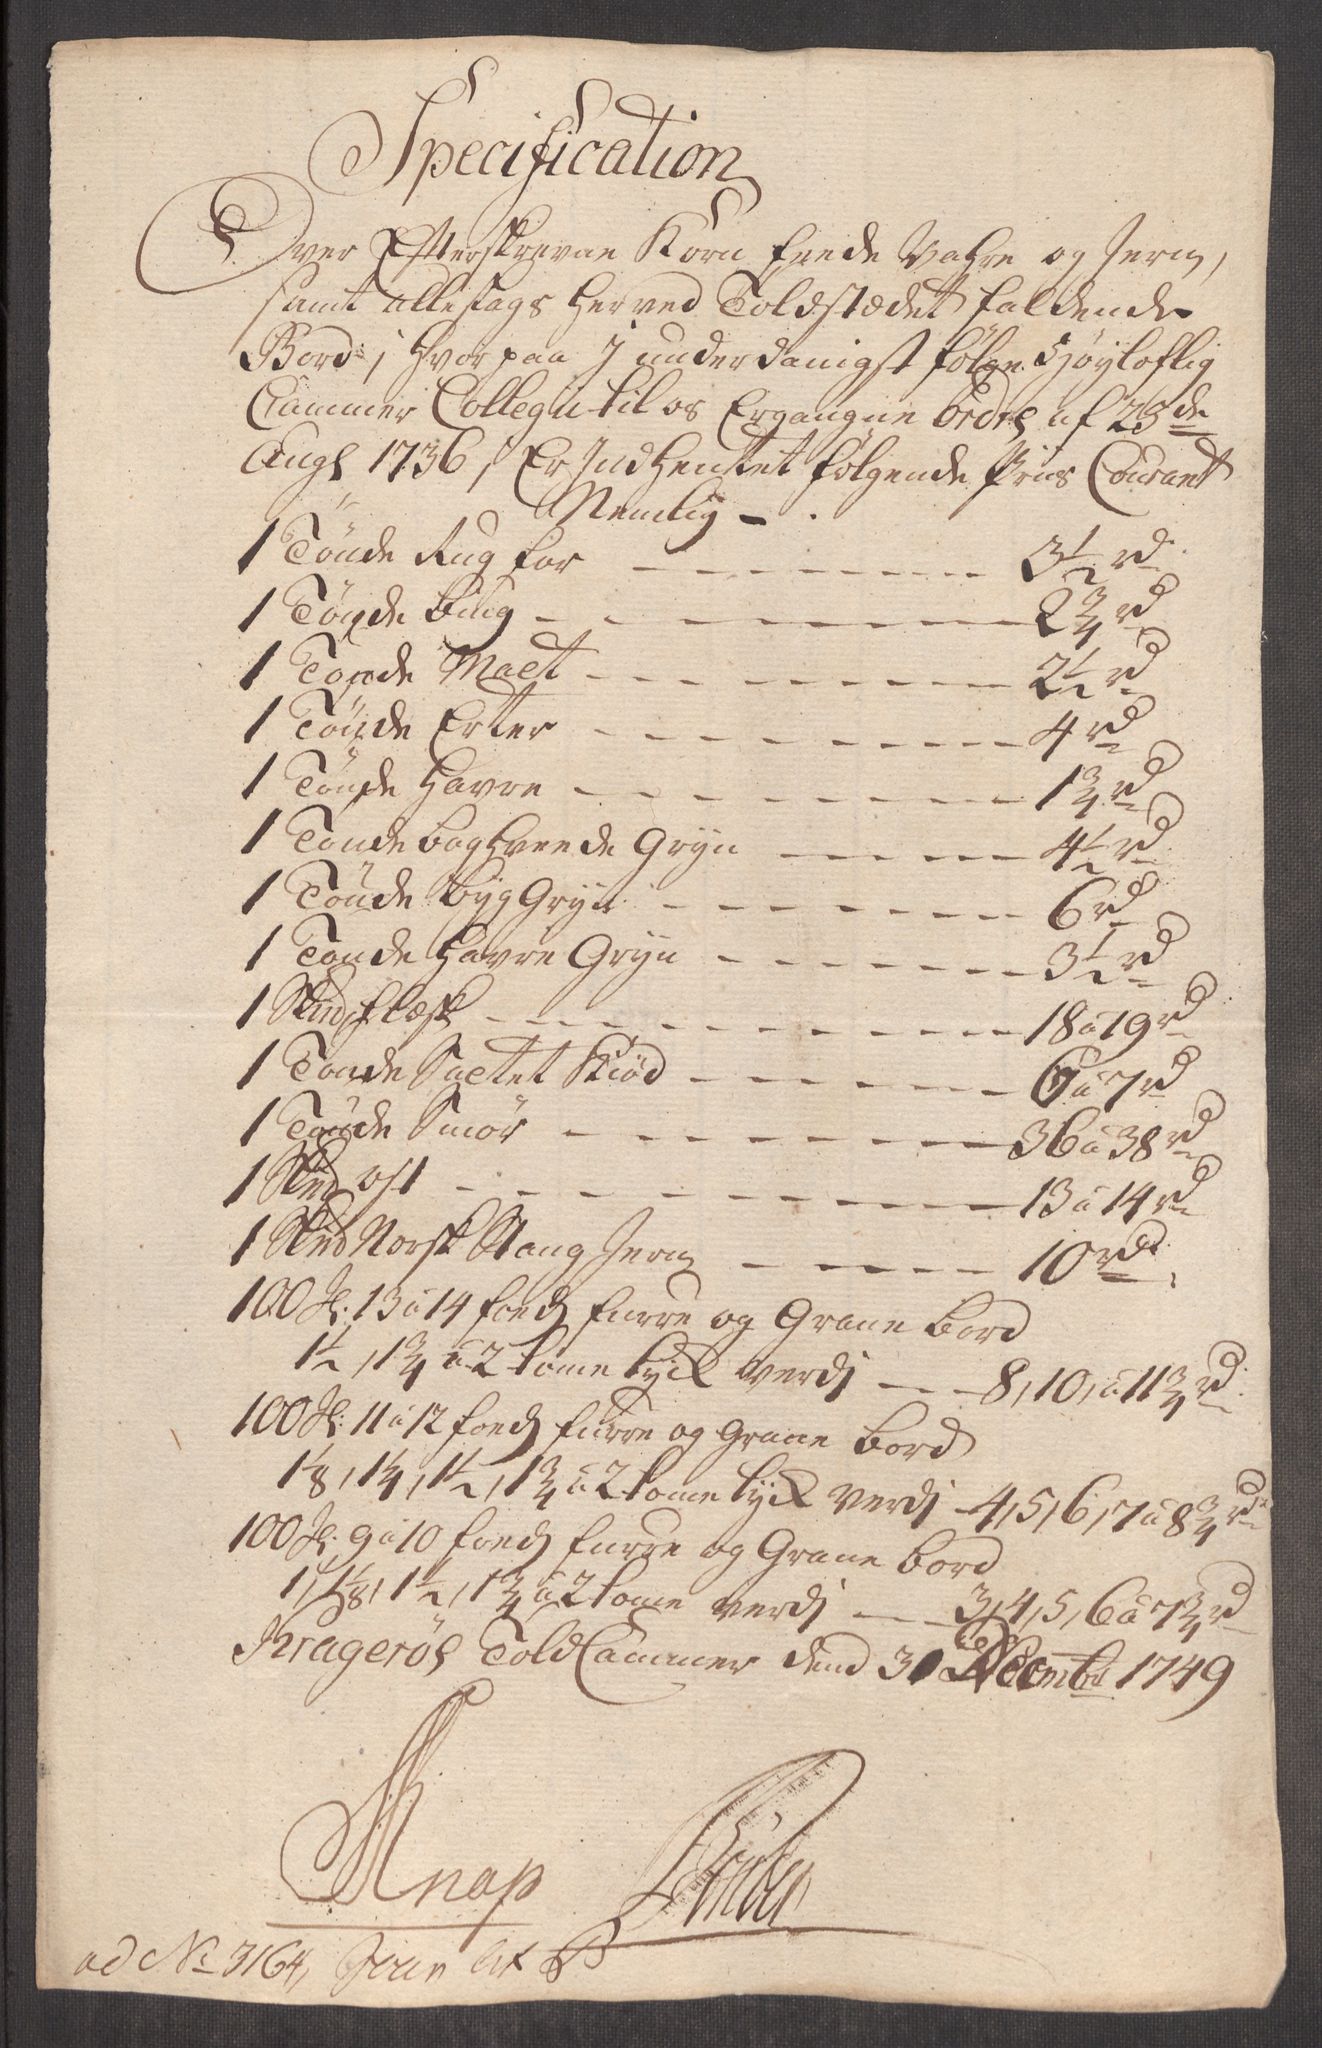 Specification
Over Efterskrevne Korn Feede Vahre og Jern,
samt alle slags her ved Toldstædet faldende
Bord; hvorpaa j underdanigst følge Høyloflig
Cammer Collegii til os Ergangne Ordre af 23de
Aug 1736, Er Indhentet følgende Priis Courant
Nemlig -
1 Tönde Rug for - - - - - - - 3½ rd
1 Tönde Biug - - - - - - - 2¾ rd
1 Tønde Malt - - - - - - - 2½ rd
1 Tönde Erter - - - - - - - 4 rd
1 Tönde Havre - - - - - - - 1¾ rd
1 Tønde boghveede Gryn - - - - 4½ rd
1 Tönde byg Gryn - - - - - - 6 rd
1 Tönde Havre Gryn - - - - - 3½ rd
1 Skpd Flesk - - - - - - - 18 à 19 rd
1 Tønde Saltet Kiød - - - - - 6 à 7 rd
1 Tönde Smör - - - - - - - 36 à 38 rd
1 Skpd Ost - - - - - - - 13 à 14 rd
1 Skpd Norsk Stang Jern - - - - 10 rd
100 St: 13 à 14 foeds furre og Grane bord
1½, 1¾ à 2 tome tyck verdj - - 8, 10, à 11¾ rd
100 St: 11 à 12 foeds furre og Grane bord
1⅛, 1¼, 1½, 1¾ à 2 tome tyck verdj - 4, 5, 6, 7 à 8¾ rd
100 St: 9 à 10 foeds furre og Grane bord
1, 1⅛, 1½, 1¾ à 2 tome verdj - - 3, 4, 5, 6 à 7¾ rd
Kragerös Told Cammer dend 31 Decembr 1749
Knap
ad No 3164,